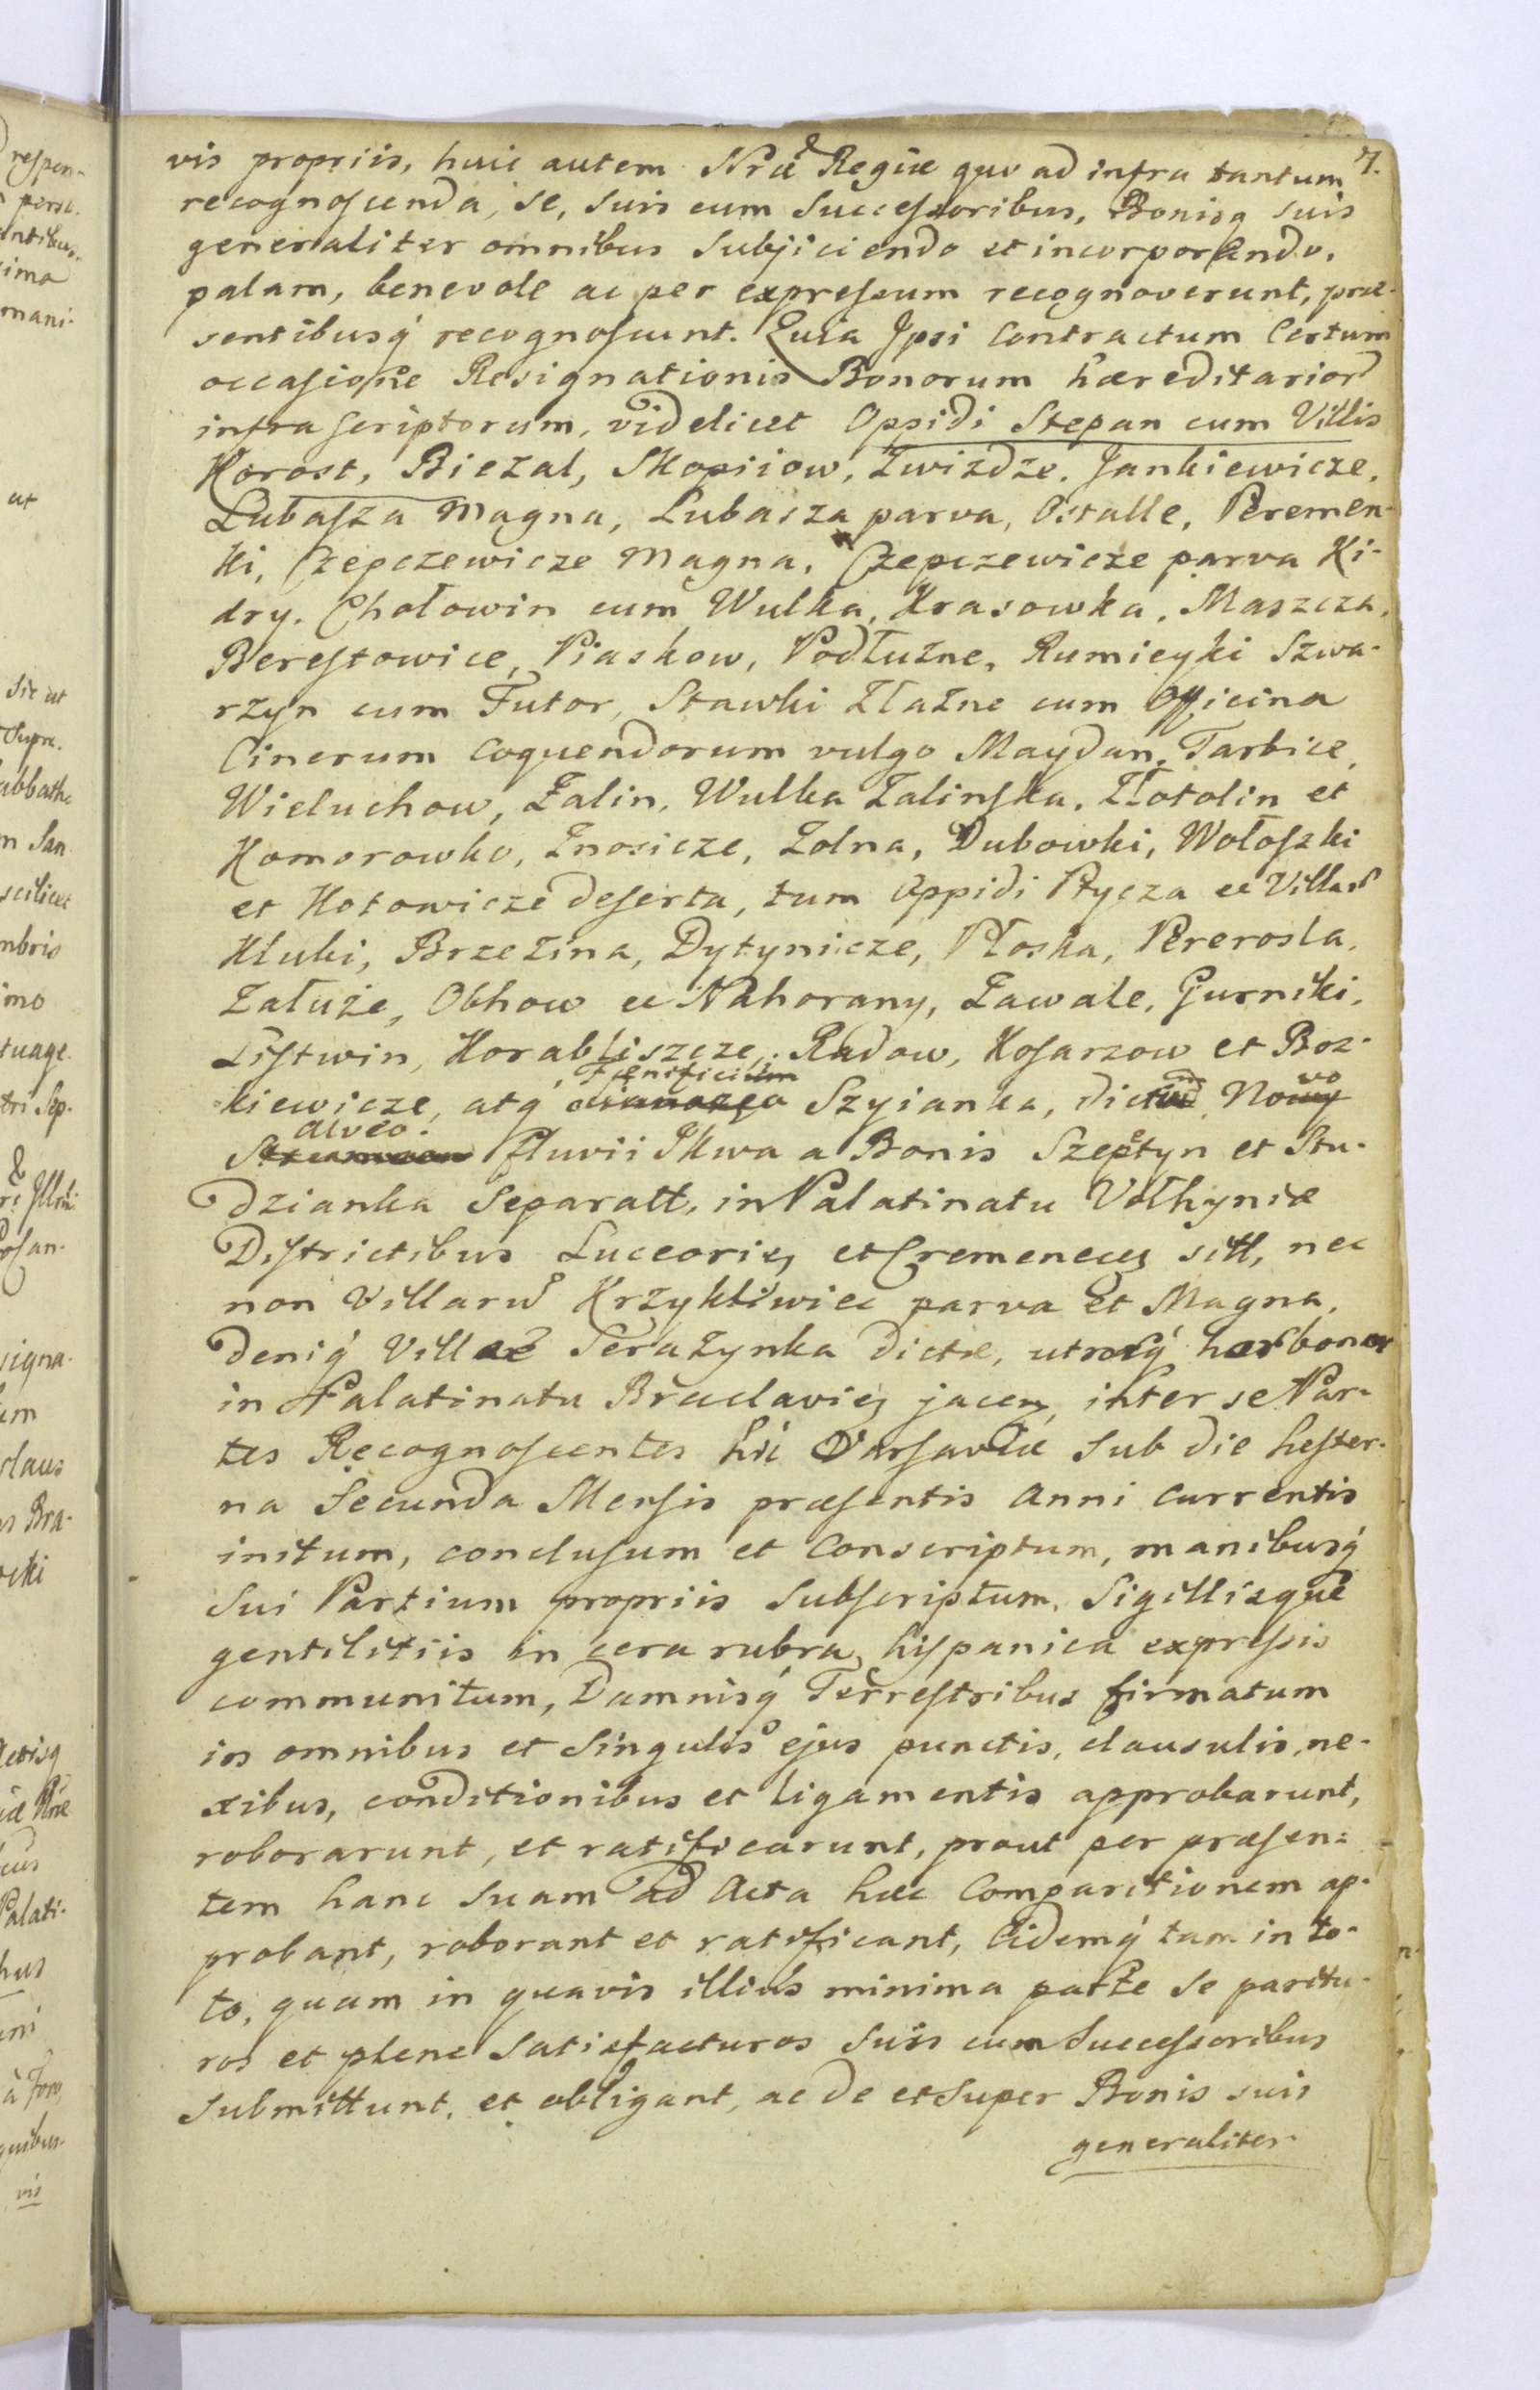 7.
vis propriis, huic autem Nrae Regiae quo ad infra tantum
recognoscenda, se, suis cum Successoribus, Bonisq suis
generaliter omnibus Subjiciendo et incorporando,
palam, benevole ac per expressum recognoverunt, prae-
sentibusq́ recognoscunt. Quia Ipsi Contractum Certum
occasione Resignationis Bonorum haereditarior
infra scriptorum, videlicet Oppidi Stepan cum Villis
Horost, Bieżal, Skopiiow, Zwizdże, Jankiewicze,
Lubasza Magna, Lubasza parva, Ostalle, Peremen-
ki, Czepczewicze Magna, Czepczewicze parva Ki-
dry. Chołowin cum Wulka, Krasowka, Maszcza,
Berestowice, Piaskow, Podłużne, Rumieyki Szwa-
rzyn cum Futor, Stawki Złaźne cum Officina
Cinerum Coquendorum vulgo Maydan, Tarbice,
Wieluchow, Zalin, Wulka Zalinska, Złotolin et
Komorowko, Znosicze, Zolna, Dubowki, Wołoszki
et Hotowicze deserta, tum Oppidi Ptycza et Villar
Kluki, Brzezina, Dytynicze, Płoska, Pererosla,
Załuże, Obhow et Nahorany, Zawale, Gurniki,
Listwin, Horabliszcze, Radow, Kosarzow et Boz-
Fœnificium
kiewicze, atq́ Szyianka, Nowo
alveo
fluvii Ikwa a Bonis Szeptyn et Stu-
dzianka Separatt, in Palatinatu Volhyniae
Districtibus Luceorieɳ et Cremeneceɳ sitt, nec
non Villarũ Krzykliwiec parva et Magna,
deniq́ Villae Serażynka dictae, utrorq́ horbonor
in Palatinatu Braclavieɳ jaceɳ, inter se Par-
tes Recognoscentes hic Varsaviae Sub die hester-
na Secunda Mensis praesentis Anni Currentis
initum, conclusum et Conscriptum, manibusq́
Sui Partium propriis Subscriptum, Sigillisque
gentilitiis in cera rubra hispanica expressis
communitum, Damnisq́ Terrestribus firmatum
in omnibus et Singulis ejus punctis, clausulis, ne-
xibus, conditionibus et ligamentis approbarunt,
roborarunt, et ratificarunt, prout per praesen-
tem hanc Suam ad Acta haec Comparitionem ap-
probant, roborant et ratificant, Eidemq́ tam in to-
to, quam in quavis illius minima parte Se paritu-
ros et plene Satisfacturos Suis cum Successoribus
Submittunt, et obligant, ac de et Super Bonis suis
generaliter